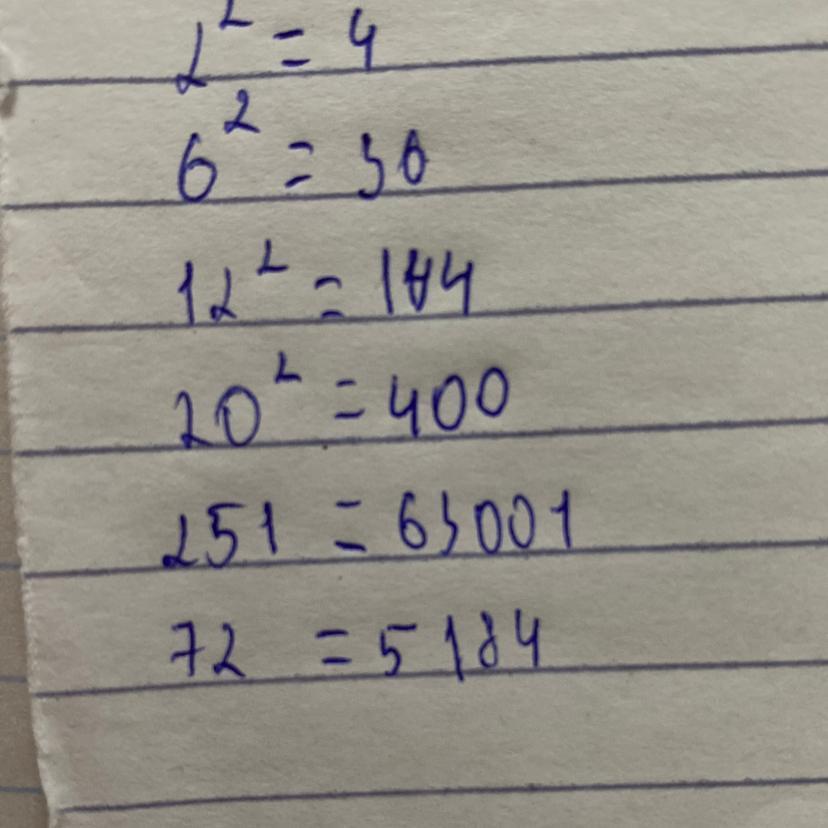 2² = 4
6² = 36
12² = 144
20² = 400
251 = 63001
72 = 5184